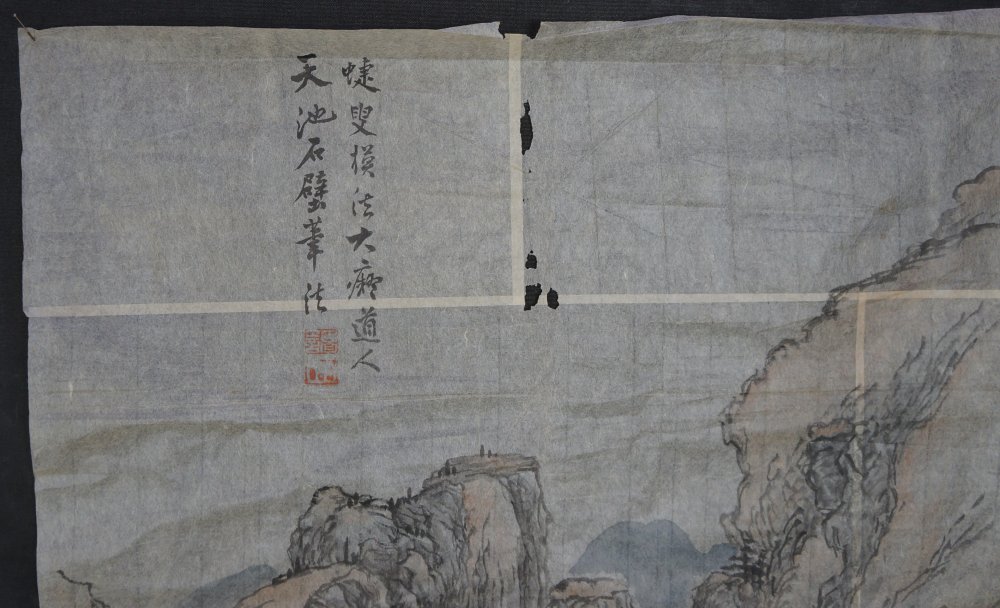 蜨叟橅法大癡道人
天池石壁筆法